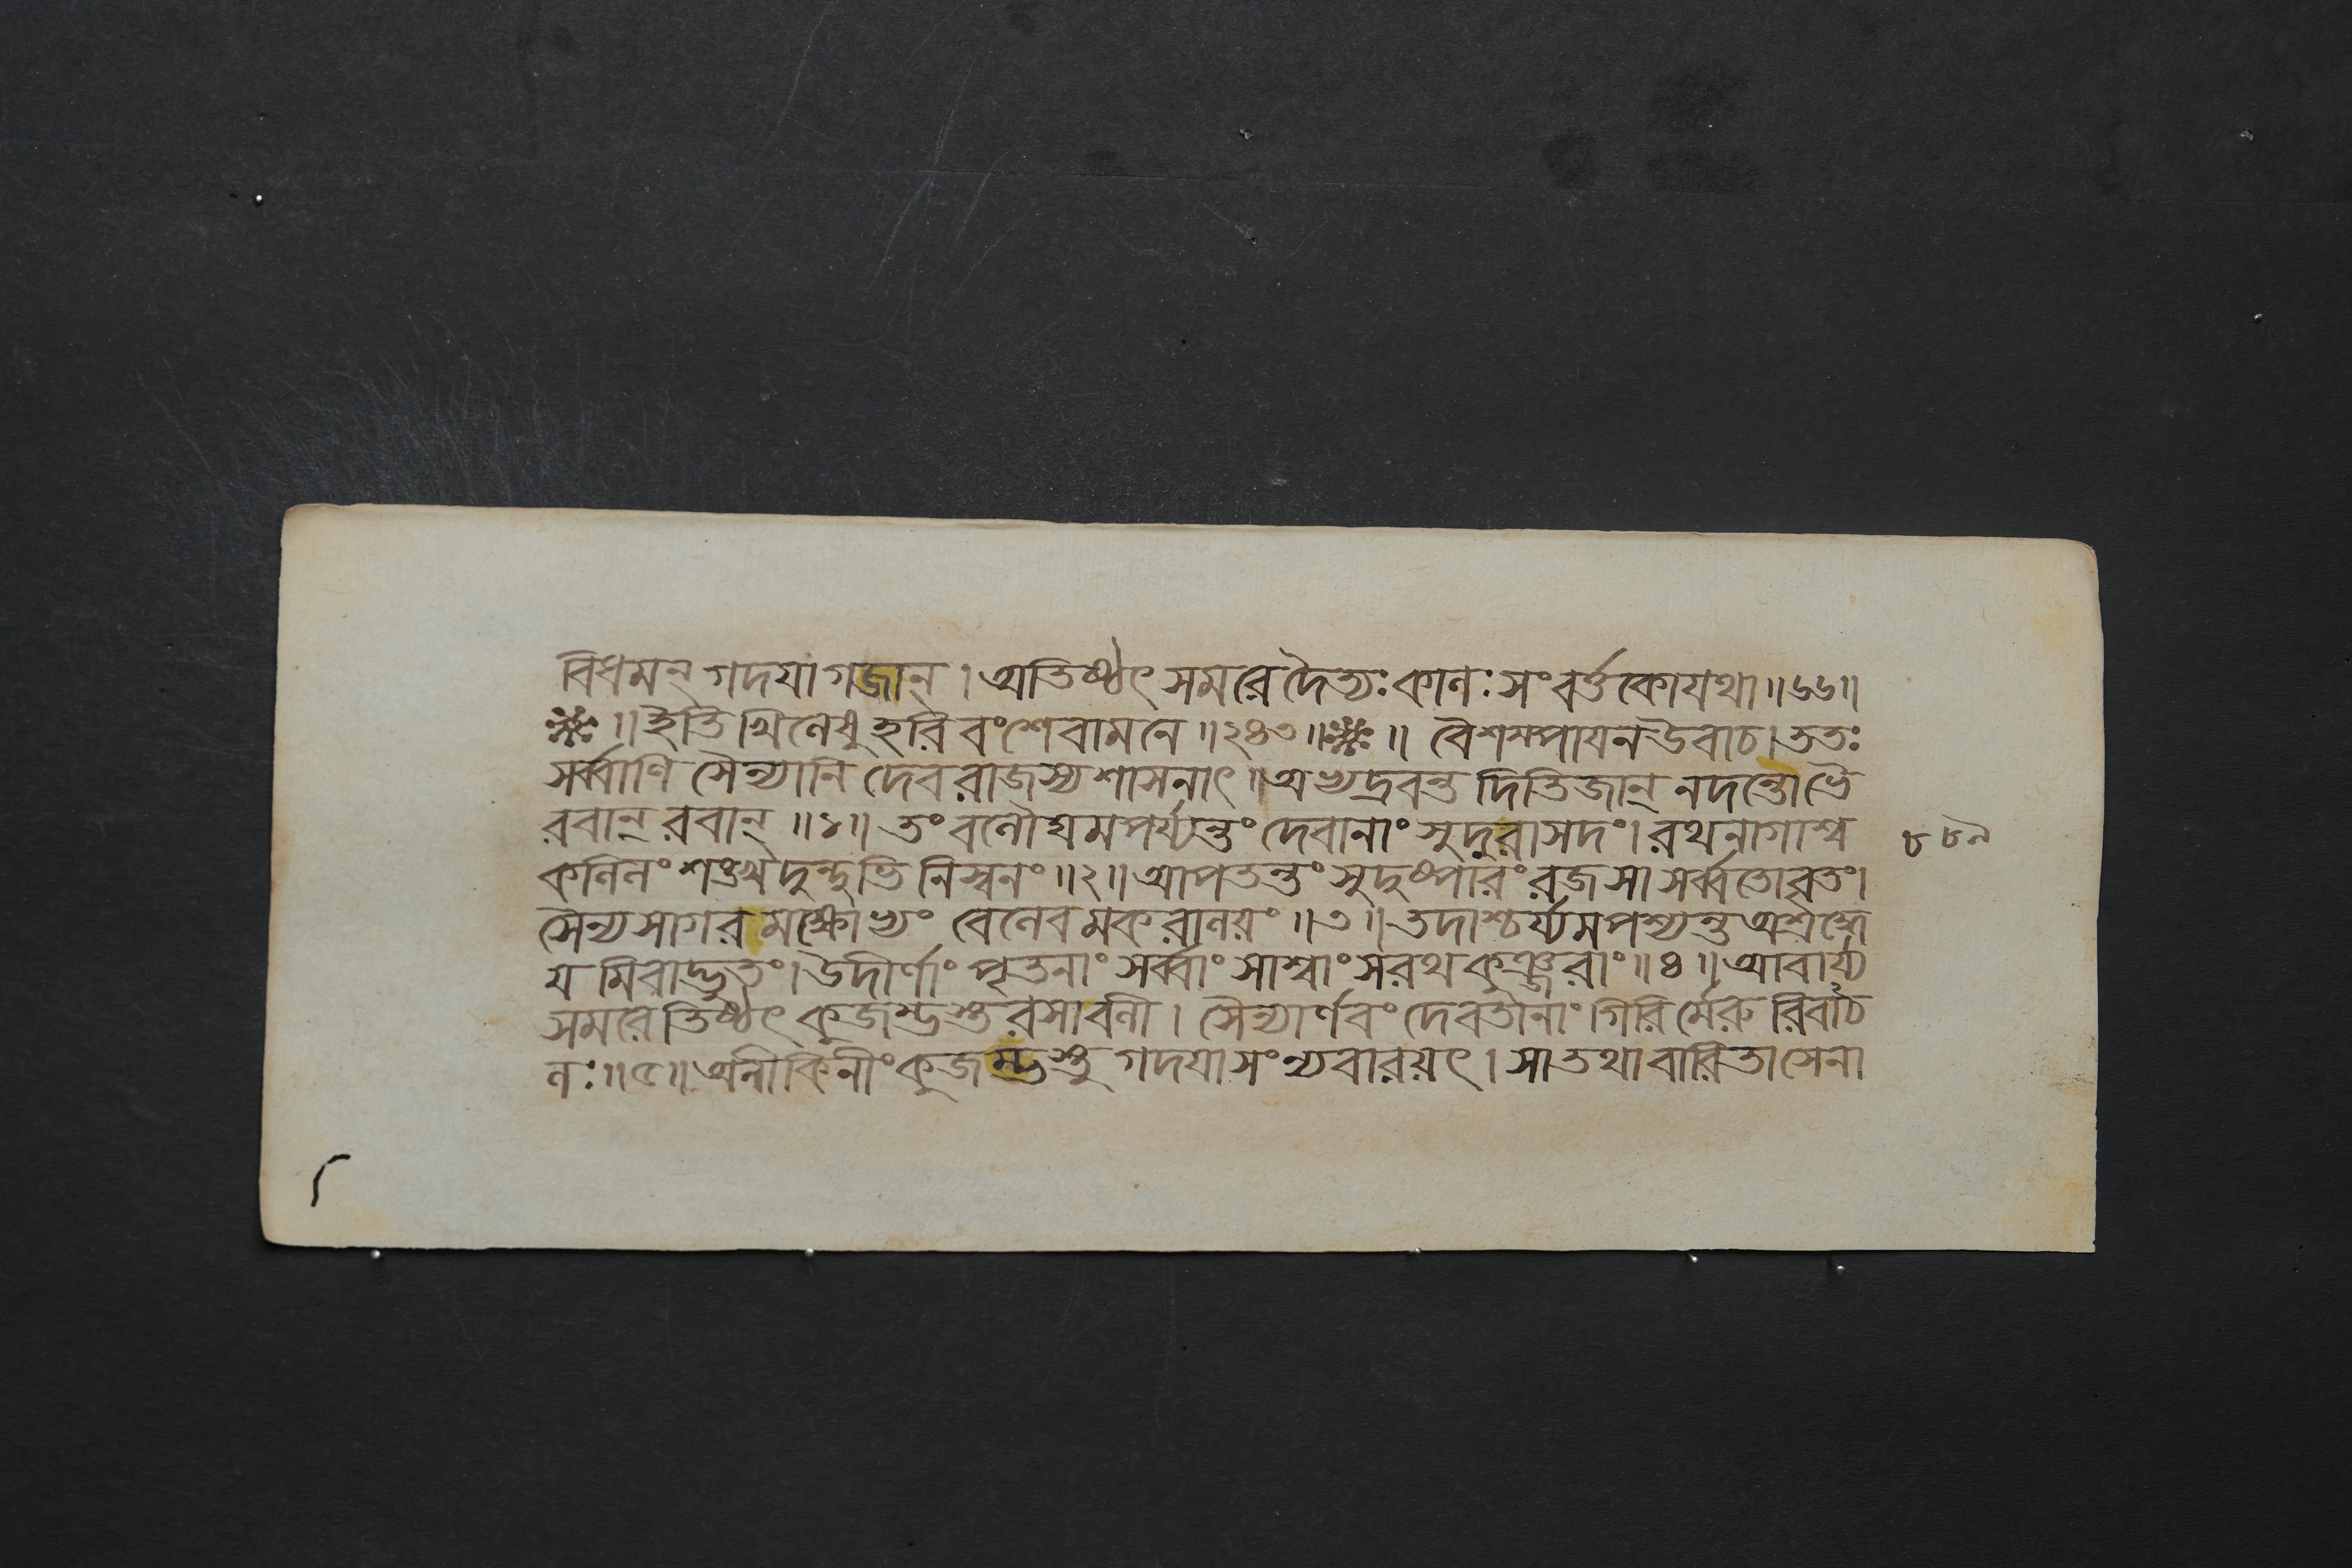 বিধমন্ গদযা গজান্ । অতিষ্ঠৎ সমরে দৈত্যঃ কালঃ সংবর্ত্তকো যথা ॥ ৬৬ ॥
॥ ইতি খিলেষু হরিবংশে বামনে ॥ ২৪৩ ॥ ॥ বৈশম্পাযন উবাচ । ততঃ
সর্ব্বাণি সৈন্যানি দেবরাজস্য শাসনাৎ । অভ্যদ্রবন্ত দিতিজান্ নদন্তো ভৈ
রবান্ রবান্ ॥ ১ ॥ তং বলৌঘমপর্য্যন্তং দেবানাং সুদুরাসদং । রথনাগাশ্ব
কলিলং শঙ্খদুন্দুভি নিস্বনং ॥ ২ ॥ আপতন্তং সুদুষ্পারং রজসা সর্ব্বতো বৃতং ।
সৈন্যসাগরমক্ষোভ্যং বেলেব মকরালয়ং ॥ ৩ ॥ তদাশ্চর্য্যমপশ্যন্ত অশ্রদ্ধে
য মিবাদ্ভুতং । উদীর্ণাং পৃতনাং সর্ব্বাং সাশ্বাং সরথ কুঞ্জরাং ॥ ৪ ॥ আবার্য্য
সমরে তিষ্ঠৎ কুজম্ভস্তরসা বলী । সৈন্যার্ণবং দেবতানাং গিরির্মেরু রিবাচ
লঃ ॥ ৫ ॥ অনীকিনীং কুজম্ভস্তু গদযা সংন্যবারয়ৎ । সা তথা বারিতা সেনা
৮৮৯